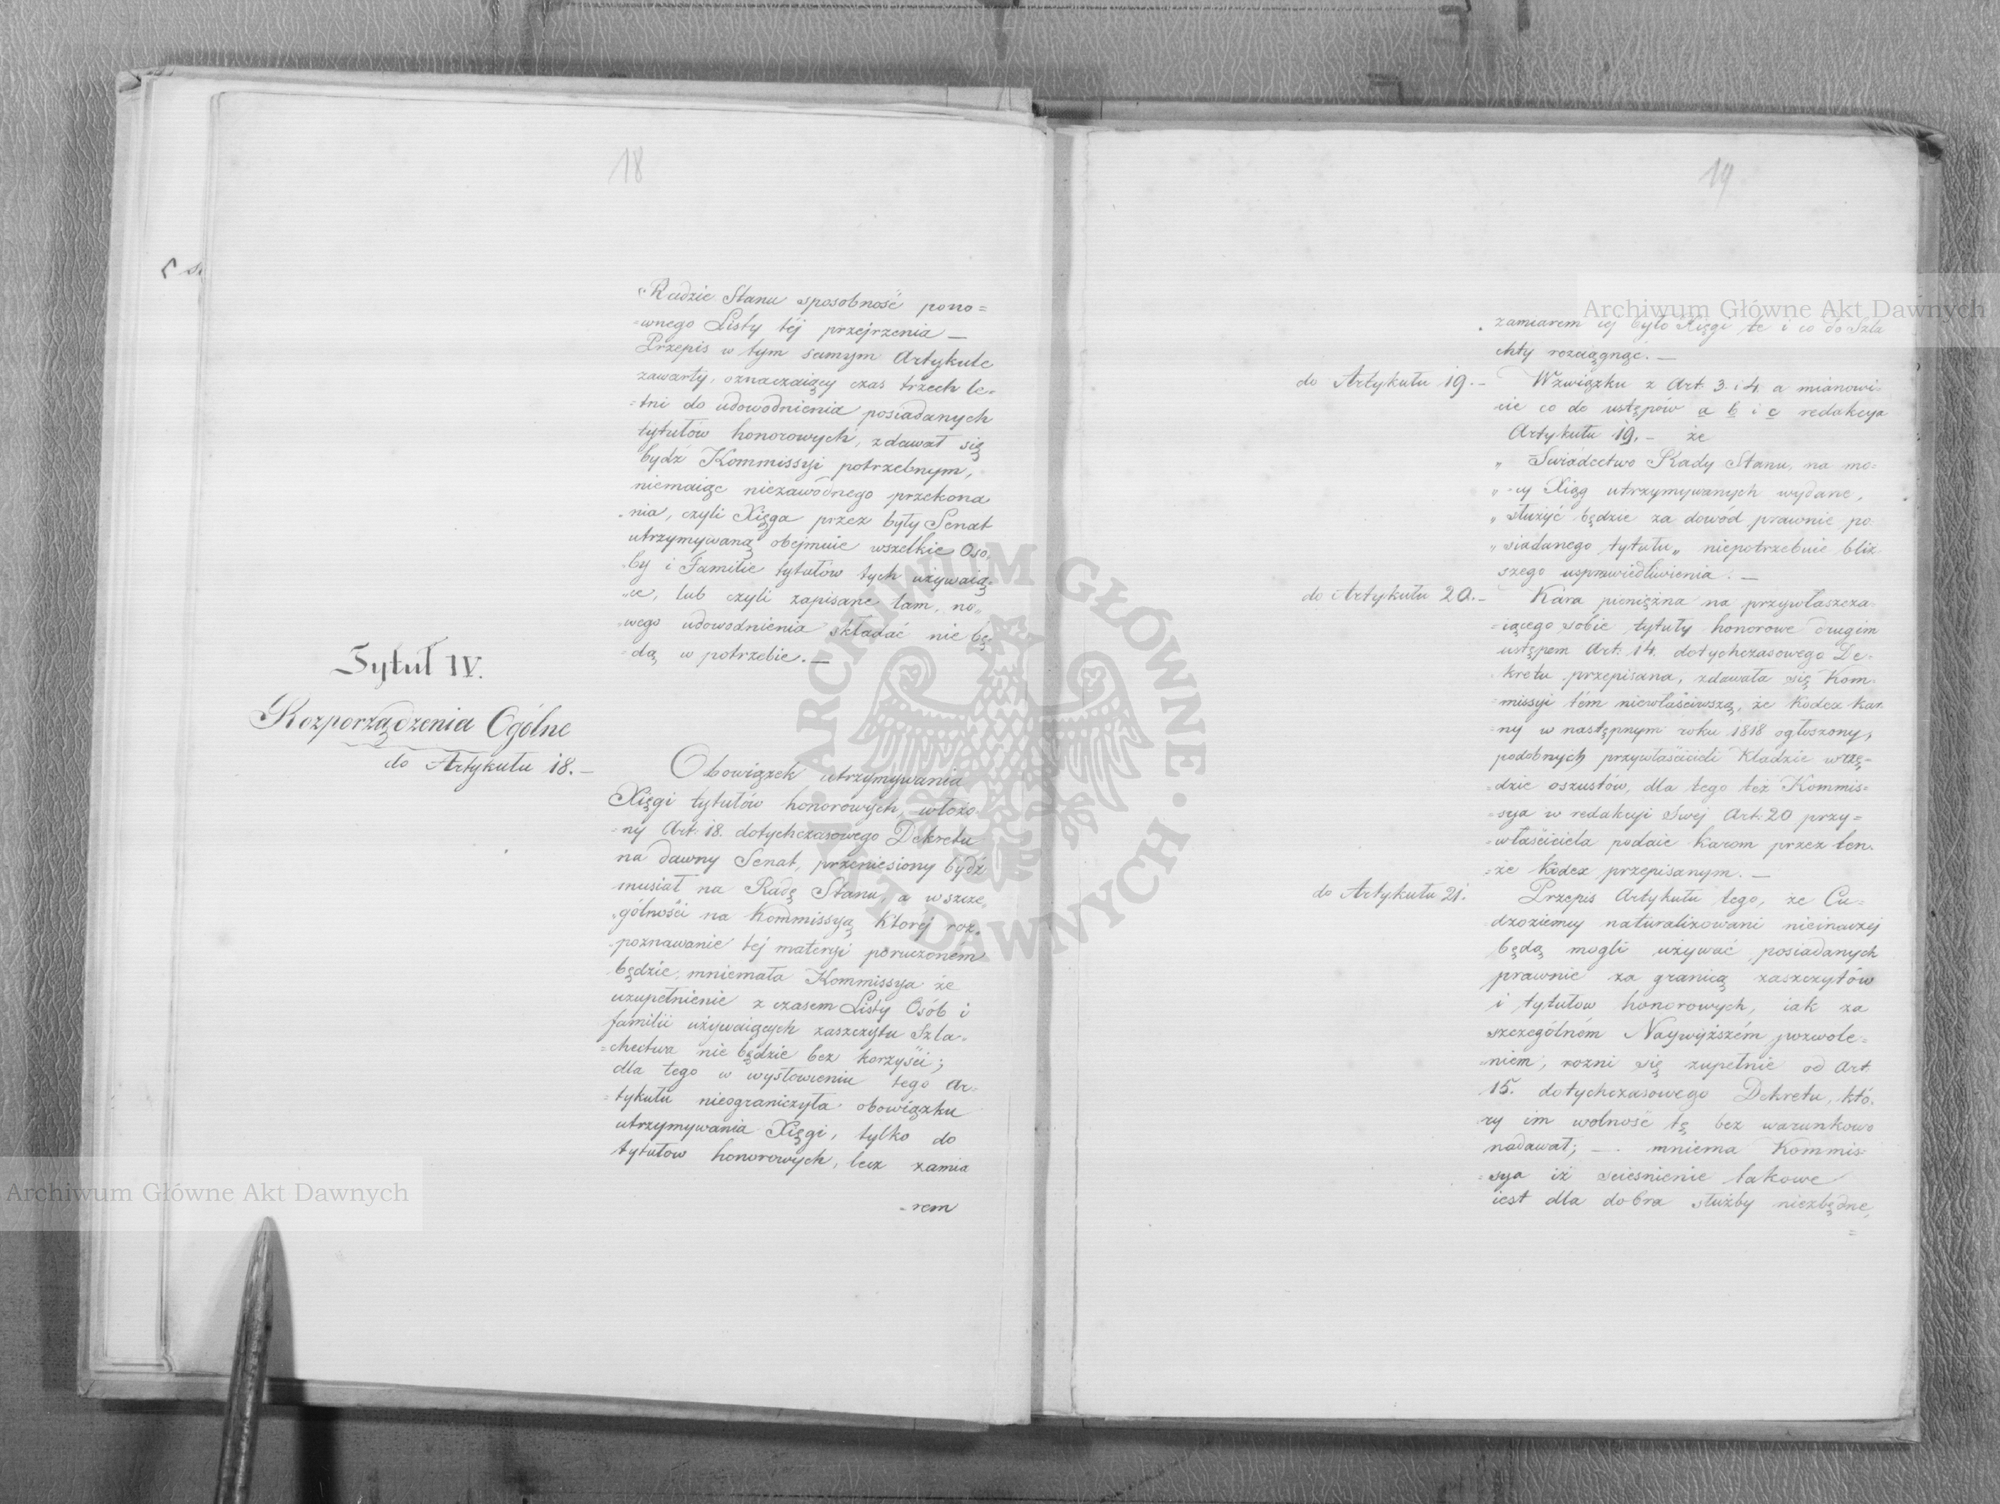 18
Radzie Stanu sposobność pono=
=wnego Listy téj przejrzenia —
Przepis w tym samym Artykule
zawarty, oznaczaiący czas trzech le=
=tni do udowodnienia posiadanych
tytułów honorowych, zdawał się
bydź Kommissyi potrzebnym,
niemaiąc niezawodnego przekona
nia, czyli Xięga przez były Senat
utrzymywaną obejmuie wszelkie Oso,
by i Familie tytułów tych używaią,
ce, lub czyli zapisane tam, no,,
wego udowodnienia składać nie bę
dą w potrzebie. —
Tytuł IV.
Rozporządzenia Ogólne
do Artykułu 18. —
Obowiązek utrzymywania
Xięgi tytułów honorowych, włożo
=ny Art. 18. dotychczasowego Dekretu
na dawny Senat, przeniesiony bydź
musiał na Radę Stanu, a wszcze,
gólności na Kommissyą, Ktorej roz,
poznawanie tej materyi poruczonem
będzie, mniemała Kommissya że
uzupełnienie z czasem Listy Osób i
familii używaiących zaszczytu Szla=
=chectwa nie będzie bez korzyści;
dla tego w wysłowieniu tego Ar=
=tykułu nieograniczyła obowiązku
utrzymywania Xięgi, tylko do
tytułow honorowych, lecz zamia
=rem
19
zamiarem iej było Xięgi te i co do Szla
chty rozciągnąć. —
do Artykułu 19. —
Wzwiązku z Art. 3. i 4. a mianowi=
cie co do ustępów a b i c redakcya
Artykułu 19. — że
„ Świadectwo Rady Stanu, na mo=
„ =cy Xiąg utrzymywanych wydane,
„ służyć będzie za dowód prawnie po
„ siadanego tytułu„ niepotrzebuie bliż
szego usprawiedliwienia. —
do Artykułu 20. —
Kara pieniężna na przywłaszcza
=iącego sobie tytuły honorowe drugim
ustępem Art. 14. dotychczasowego De=
kretu przepisana, zdawała się Kom=
missyi tém niewłaściwszą, że Kodex Kar
ny w następnym roku 1818 ogłoszony,
podobnych przywłaścicieli Kładzie w rzę=
=dzie oszustów, dla tego też Kommis=
=sya w redakcyi Swej Art. 20 przy=
=właściciela podaie karom przez ten=
=że Kodex przepisanym. —
do Artykułu 21.
Przepis Artykułu tego, że Cu=
dzoziemcy naturalizowani nieinaczej
będą mogli używać posiadanych
prawnie za granicą zaszczytów
i tytułow honorowych, iak za
szczególném Naywyższém pozwole=
=niem, rozni się zupełnie od Art.
15. dotychczasowego Dekretu, któ,
ry im wolność tę bez warunkowo
nadawał; — mniema Kommis=
sya iż scieśnienie takowe
iest dla dobra służby niezbędne,
Archiwum Główne Akt Dawnych
Archiwum Główne Akt Dawnych
ARCHIWUM GŁÓWNE AKT DAWNYCH